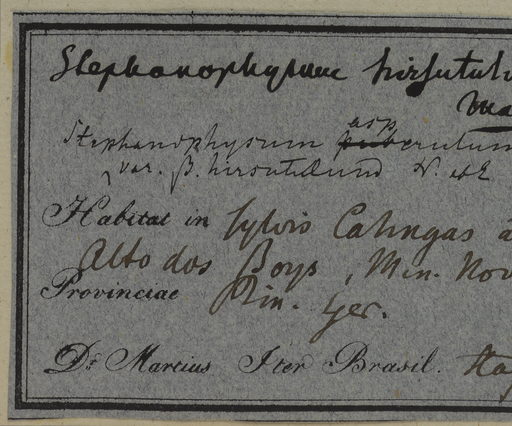 Stephanophysum hirsutulu
Stephanophysum asperulum
var. β. hirsutulum N. ab E
Habitat in sylvis Catingas
Alto dos Boys, Min. Nov
Provinciae Min. Ger.
Dr. Martius Iter Brasil.